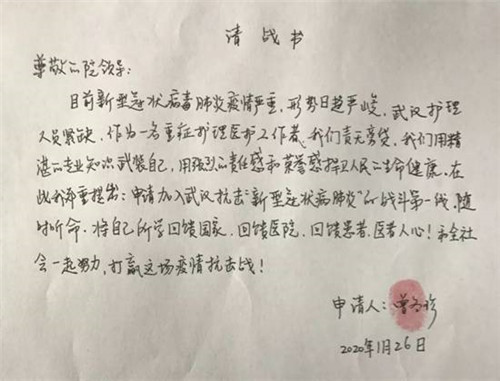 请战书
尊敬的院领导:
目前新型冠状病毒肺炎疫情严重,形势日趋严峻,武汉护理
人员紧缺,作为一名重症护理医护工作者,我们责无旁贷,我们用精
湛的专业知识武装自己,用强烈的责任感和荣誉感捍卫人民的生命健康。在
此我郑重提出:申请加入武汉抗击“新型冠状病肺炎”的战斗第一线,随
时听命,将自己所学回馈国家,回馈医院,回馈患者,医者人心!和全社
会一起努力,打赢这场疫情抗击战!
申请人:曾珍
2020年1月26日